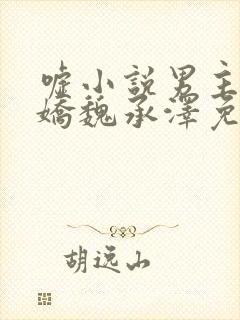 嘘小说男主
娇魏承泽免
胡远山